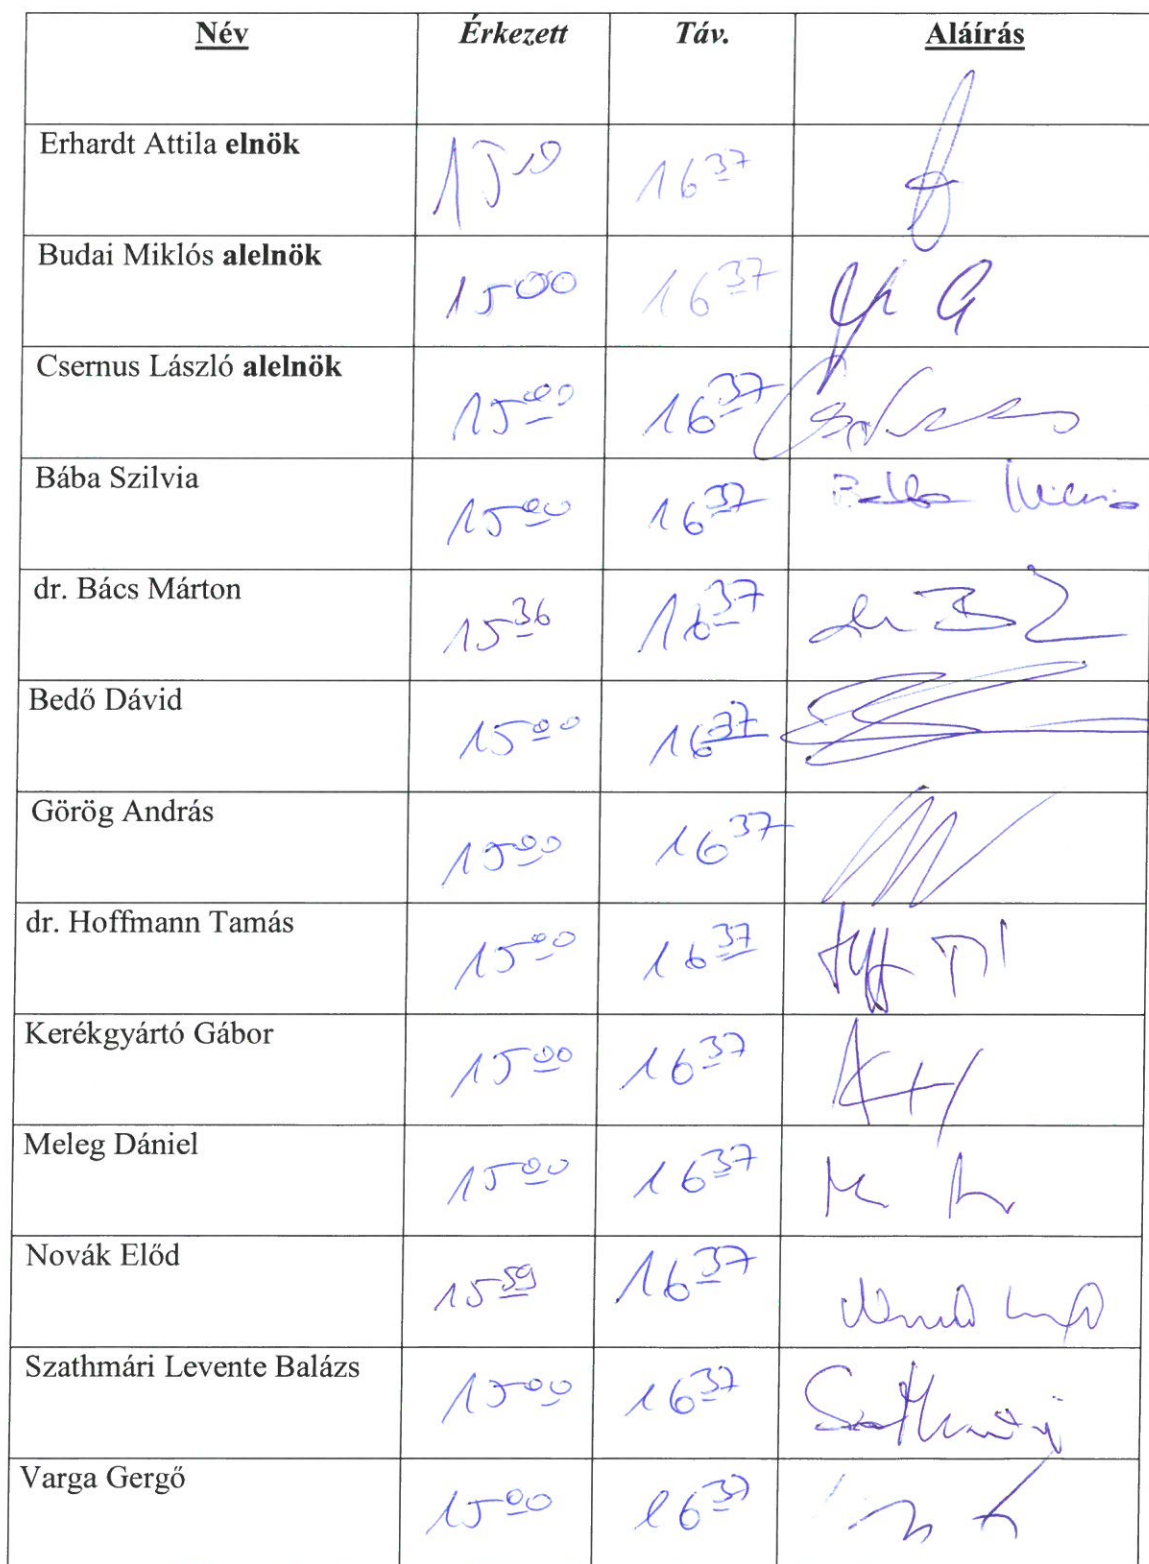 Név Érkezett Táv. Aláírás
Erhardt Attila elnök 15 19 16 37
Budai Miklós alelnök 15 00 16 37
Csernus László alelnök 15 00 16 37
Bába Szilvia 15 00 16 37
dr. Bács Márton 15 36 16 37
Bedő Dávid 15 00 16 37
Görög András 15 00 16 37
dr. Hoffmann Tamás 15 00 16 37
Kerékgyártó Gábor 15 00 16 37
Meleg Dániel 15 00 16 37
Novák Előd 15 59 16 37
Szathmári Levente Balázs 15 00 16 37
Varga Gergő 15 00 16 37